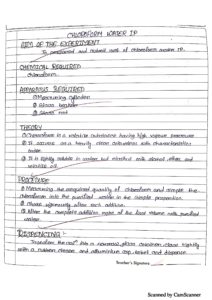 CHLOROFORM WATER IP
AIM OF THE EXPERIMENT
To and submit of chloroform water IP.
CHEMICAL REQUIRED
Chloroform.
APPARATUS REQUIRED
① Measuring cylinder
② Glass beaker
③ Glass rod
THEORY
① Chloroform is a volatile substance having high vapour pressure
② It occurs as a heavy clear colourless with characteristic
odour.
③ It is slightly soluble in water, but miscible with alcohol, ether and
volatile oil.
PROCEDURE
① Measuring the required quantity of chloroform and the
chloroform into the purified water in the proportion.
② Shake vigorously after each addition.
③ After the complete addition make up the final volume with purified
water.
DISPENSING :-
Transfer the into a glass container, close tightly
with a rubber closure and aluminium cap, label and dispense.
Teacher's Signature
Scanned by CamScanner